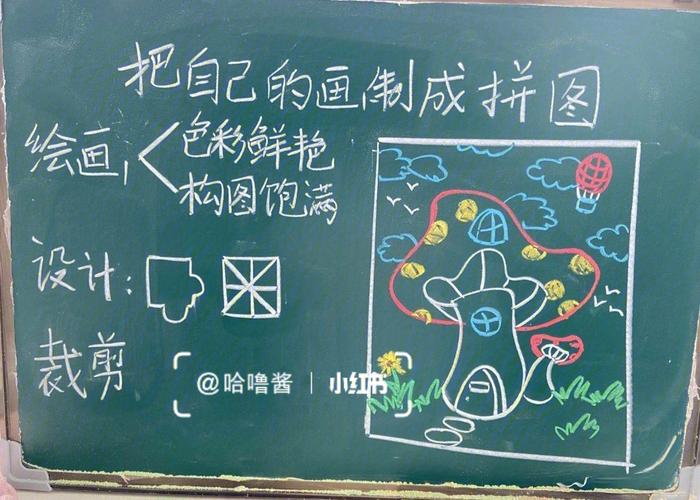 把自己的画制成拼图
绘画
色彩鲜艳
构图饱满
设计：
裁剪
@哈噜酱 | 小红书